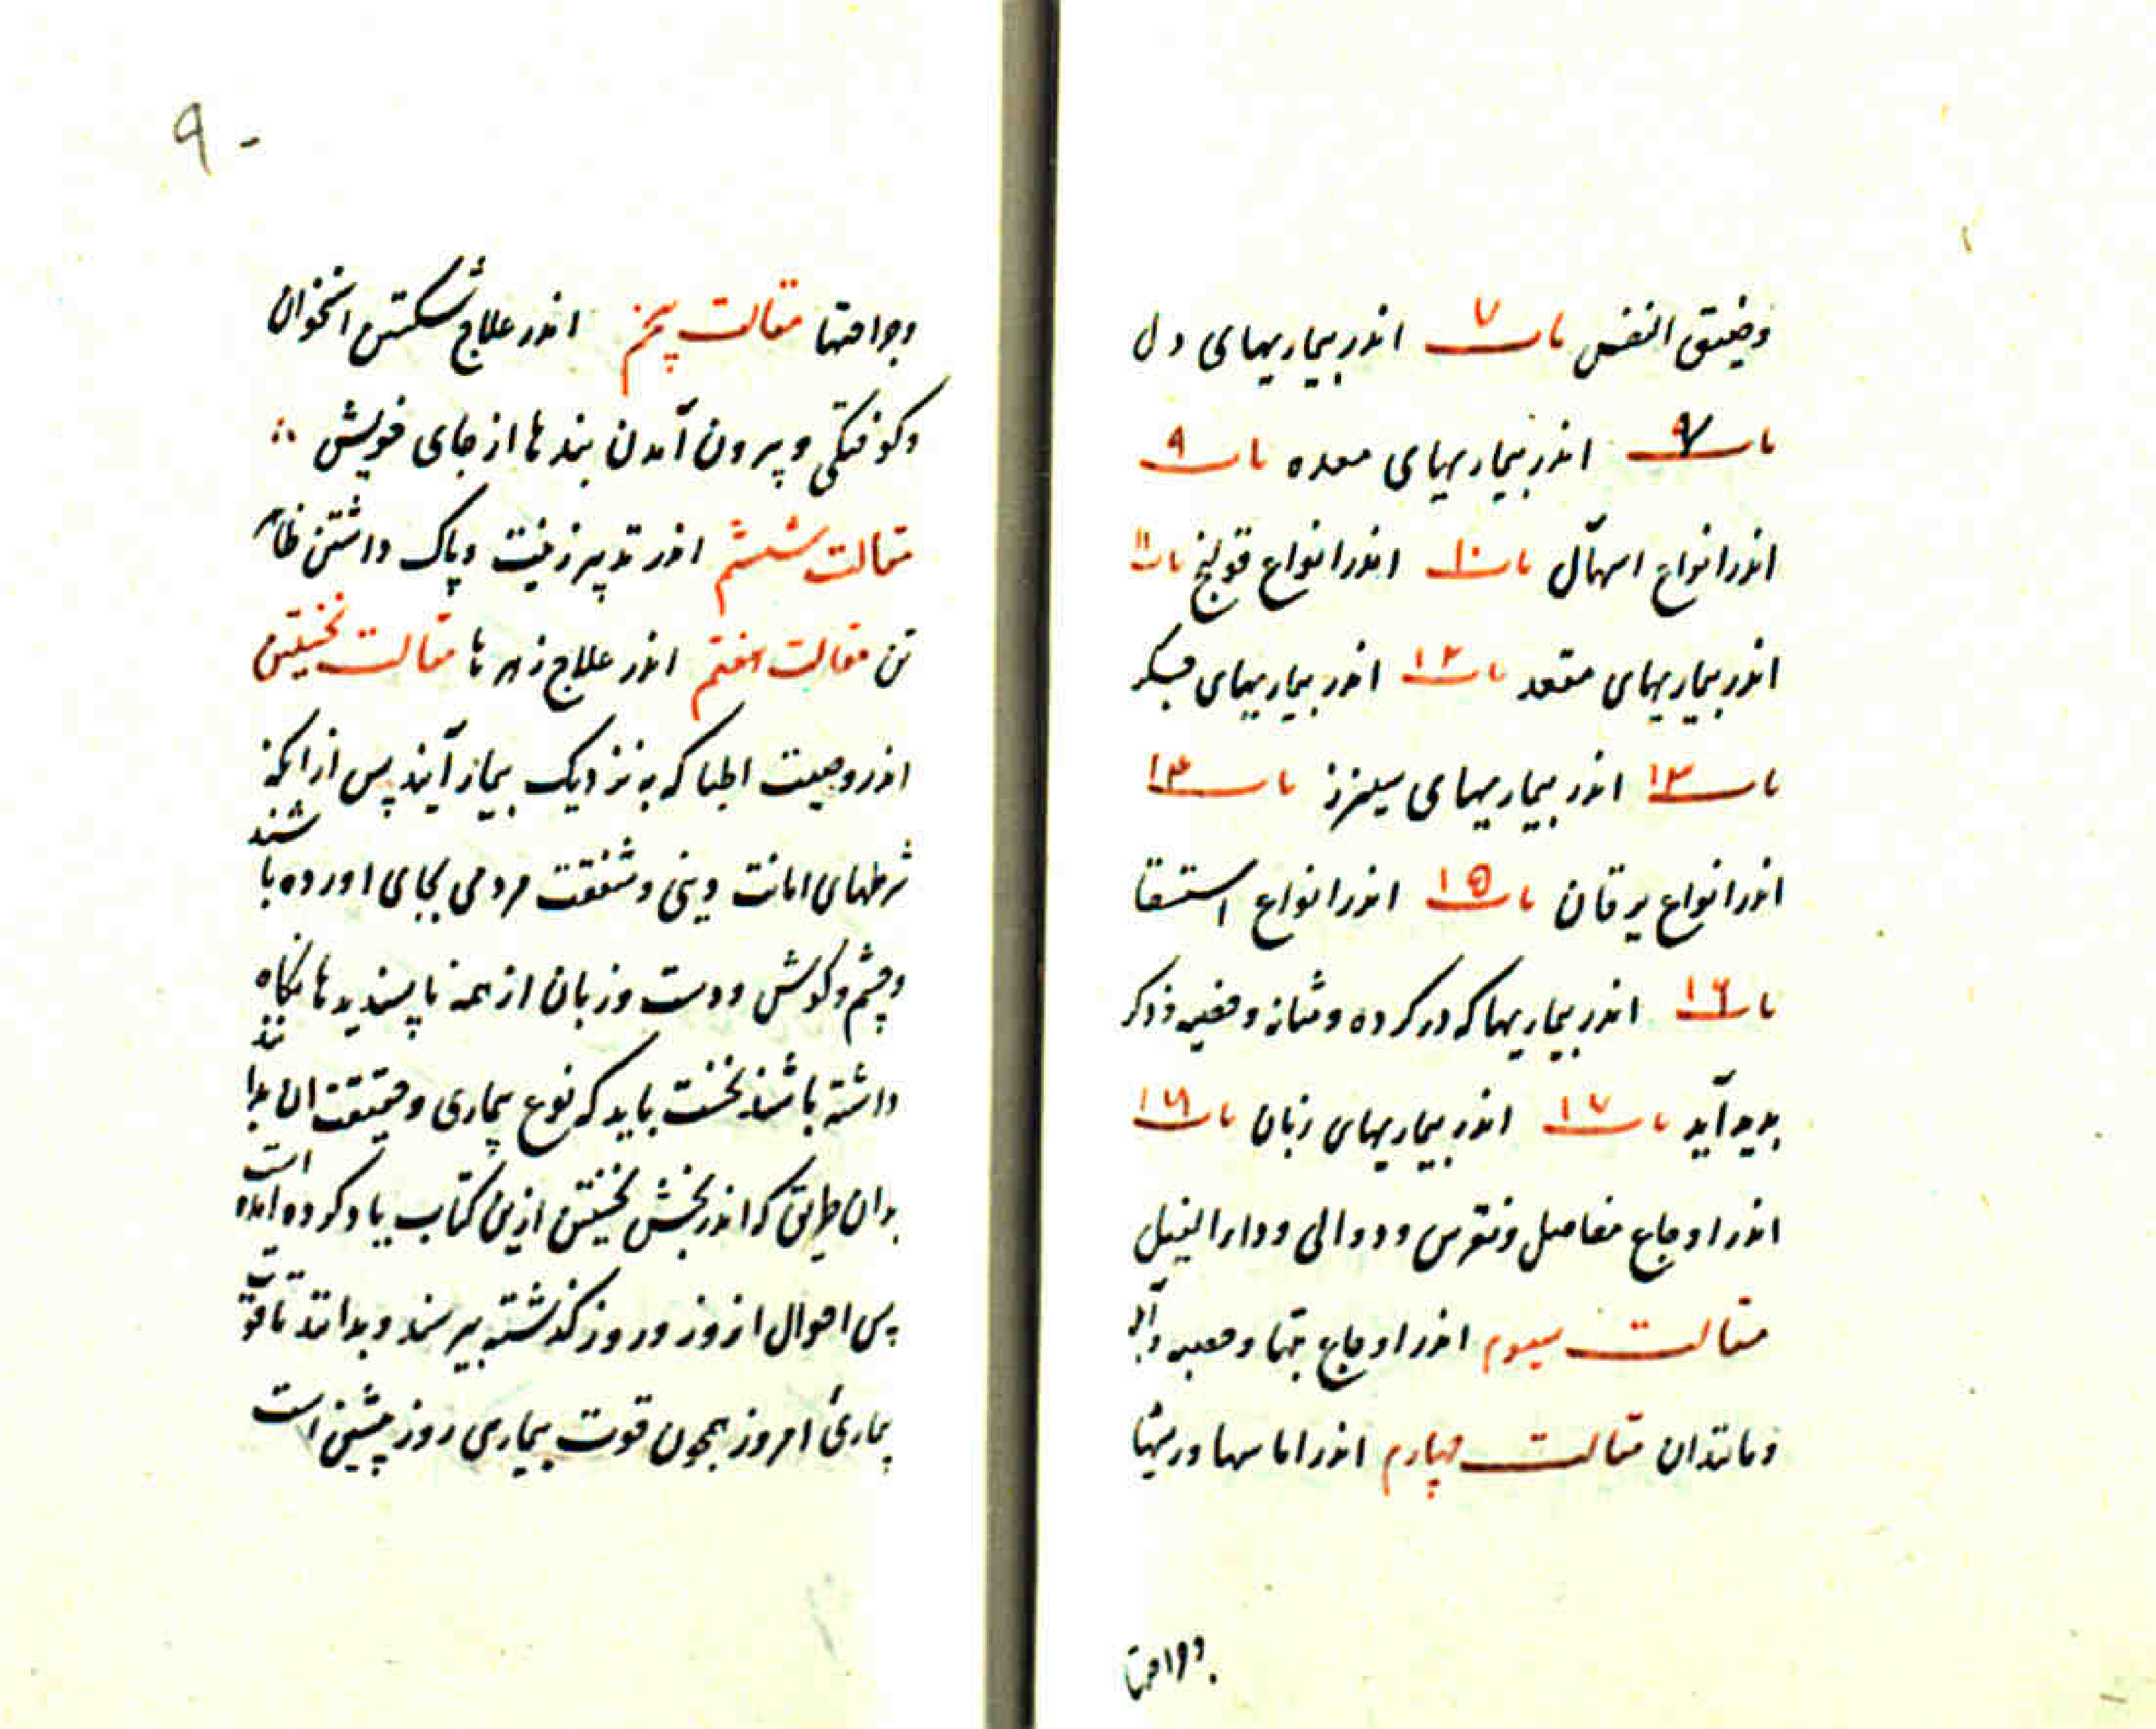 وضیق النفس باب ۷ اندر بیماریهای دل
باب اندر بیماریهای معده باب ۹
اندر انواع اسهال باب ۱۰ اندر انواع قولنج باب ۱۱
اندر بیماریهای مقعد باب ۱۲ اندر بیماریهای جگر
باب ۱۳ اندر بیماریهای سپرز باب ۱۴
اندر انواع یرقان باب ۱۵ اندر انواع استسقا
باب ۱۶ اندر بیماریها که در کرده و مثانه و خصیه و ذکر
بدید آید باب ۱۷ اندر بیماریهای زنان باب ۱۸
اندر اوجاع مفاصل و نقرس و دوالی و داء الفیل
مقالت سیوم اندر اوجاع تبها و حصبه و آبله
و مانند ان مقالت چهارم اندر اماسها و ریشها
وجراحتها
۹
وجراحتها مقالت پنجم اندر علاج شکستن استخوان
وکوفتکی و بیرون آمدن بندها از جای خویش
مقالت ششم اندر تدبیر زینت و پاک داشتن ظاهر
تن مقالت هفتم اندر علاج زهرها مقالت نخستین
اندر وصیت اطبا که به نزدیک بیمار آیند پس از انکه
شرطهای امانت دینی و شفقت مردمی بجای اورده باشند
وچشم و کوش و دست و زبان از همه ناپسندیدها نکاه
داشته باشند نخست باید که نوع بیماری و حقیقت ان بدانند
بدان طریق که اندر بخش نخستین ازین کتاب یاد کرده امده است
پس احوال از روز و روز کذشته بپرسند و بدانند تا قوت
بیماری امروز همچون قوت بیماری روز پیشین است